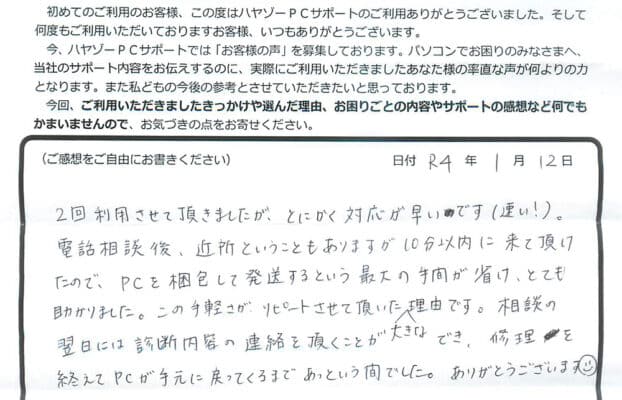 初めてのご利用のお客様、この度はハヤゾーPCサポートのご利用ありがとうございました。そして
何度もご利用いただいておりますお客様、いつもありがとうございます。
今、ハヤゾーPCサポートでは「お客様の声」を募集しております。パソコンでお困りのみなさまへ、
当社のサポート内容をお伝えするのに、実際にご利用いただきましたあなた様の率直な声が何よりの力
となります。また私どもの今後の参考とさせていただきたいと思っております。
今回、ご利用いただきましたきっかけや選んだ理由、お困りごとの内容やサポートの感想など何でも
かまいませんので、お気づきの点をお寄せください。
(ご感想をご自由にお書きください) 日付 R4 年 1 月 12 日
2回利用させて頂きましたが、とにかく対応が早いです(速い!)。
電話相談後、近所ということもありますが10分以内に来て頂け
たので、PCを梱包して発送するという最大の手間が省け、とても
助かりました。この手軽さがリピートさせて頂いた大きな理由です。相談の
翌日には診断内容の連絡を頂くことができ、修理を
終えてPCが手元に戻ってくるまであっという間でした。ありがとうございます